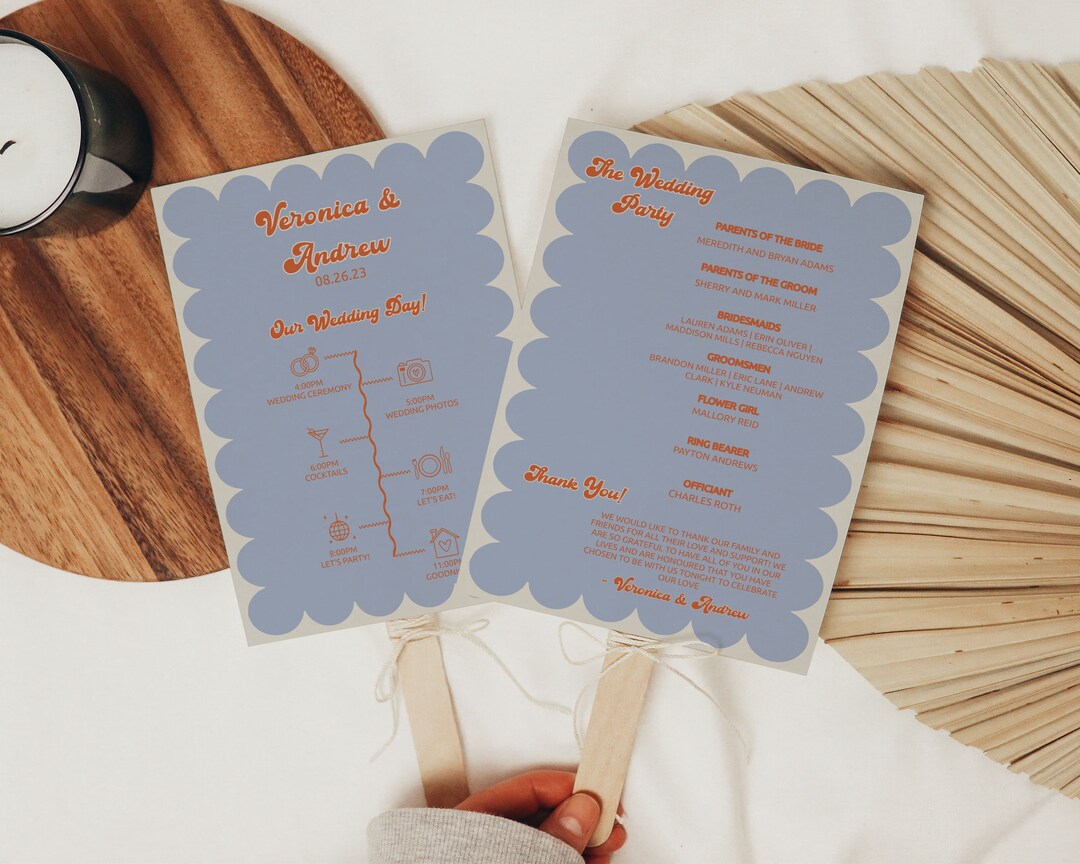 Veronica &
Andrew
08.26.23
Our Wedding Day!
4:00PM
WEDDING CEREMONY
5:00PM
WEDDING PHOTOS
6:00PM
COCKTAILS
7:00PM
LET'S EAT!
8:00PM
LET'S PARTY!
11:00P
GOODN
The Wedding
Party
PARENTS OF THE BRIDE
MEREDITH AND BRYAN ADAMS
PARENTS OF THE GROOM
SHERRY AND MARK MILLER
BRIDESMAIDS
LAUREN ADAMS | ERIN OLIVER |
MADDISON MILLS | REBECCA NGUYEN
GROOMSMEN
BRANDON MILLER | ERIC LANE | ANDREW
CLARK | KYLE NEUMAN
FLOWER GIRL
MALLORY REID
RING BEARER
PAYTON ANDREWS
OFFICIANT
CHARLES ROTH
Thank You!
WE WOULD LIKE TO THANK OUR FAMILY AND
FRIENDS FOR ALL THEIR LOVE AND SUPPORT! WE
ARE SO GRATEFUL TO HAVE ALL OF YOU IN OUR
LIVES AND ARE HONOURED THAT YOU HAVE
CHOSEN TO BE WITH US TONIGHT TO CELEBRATE
OUR LOVE
- Veronica & Andrew